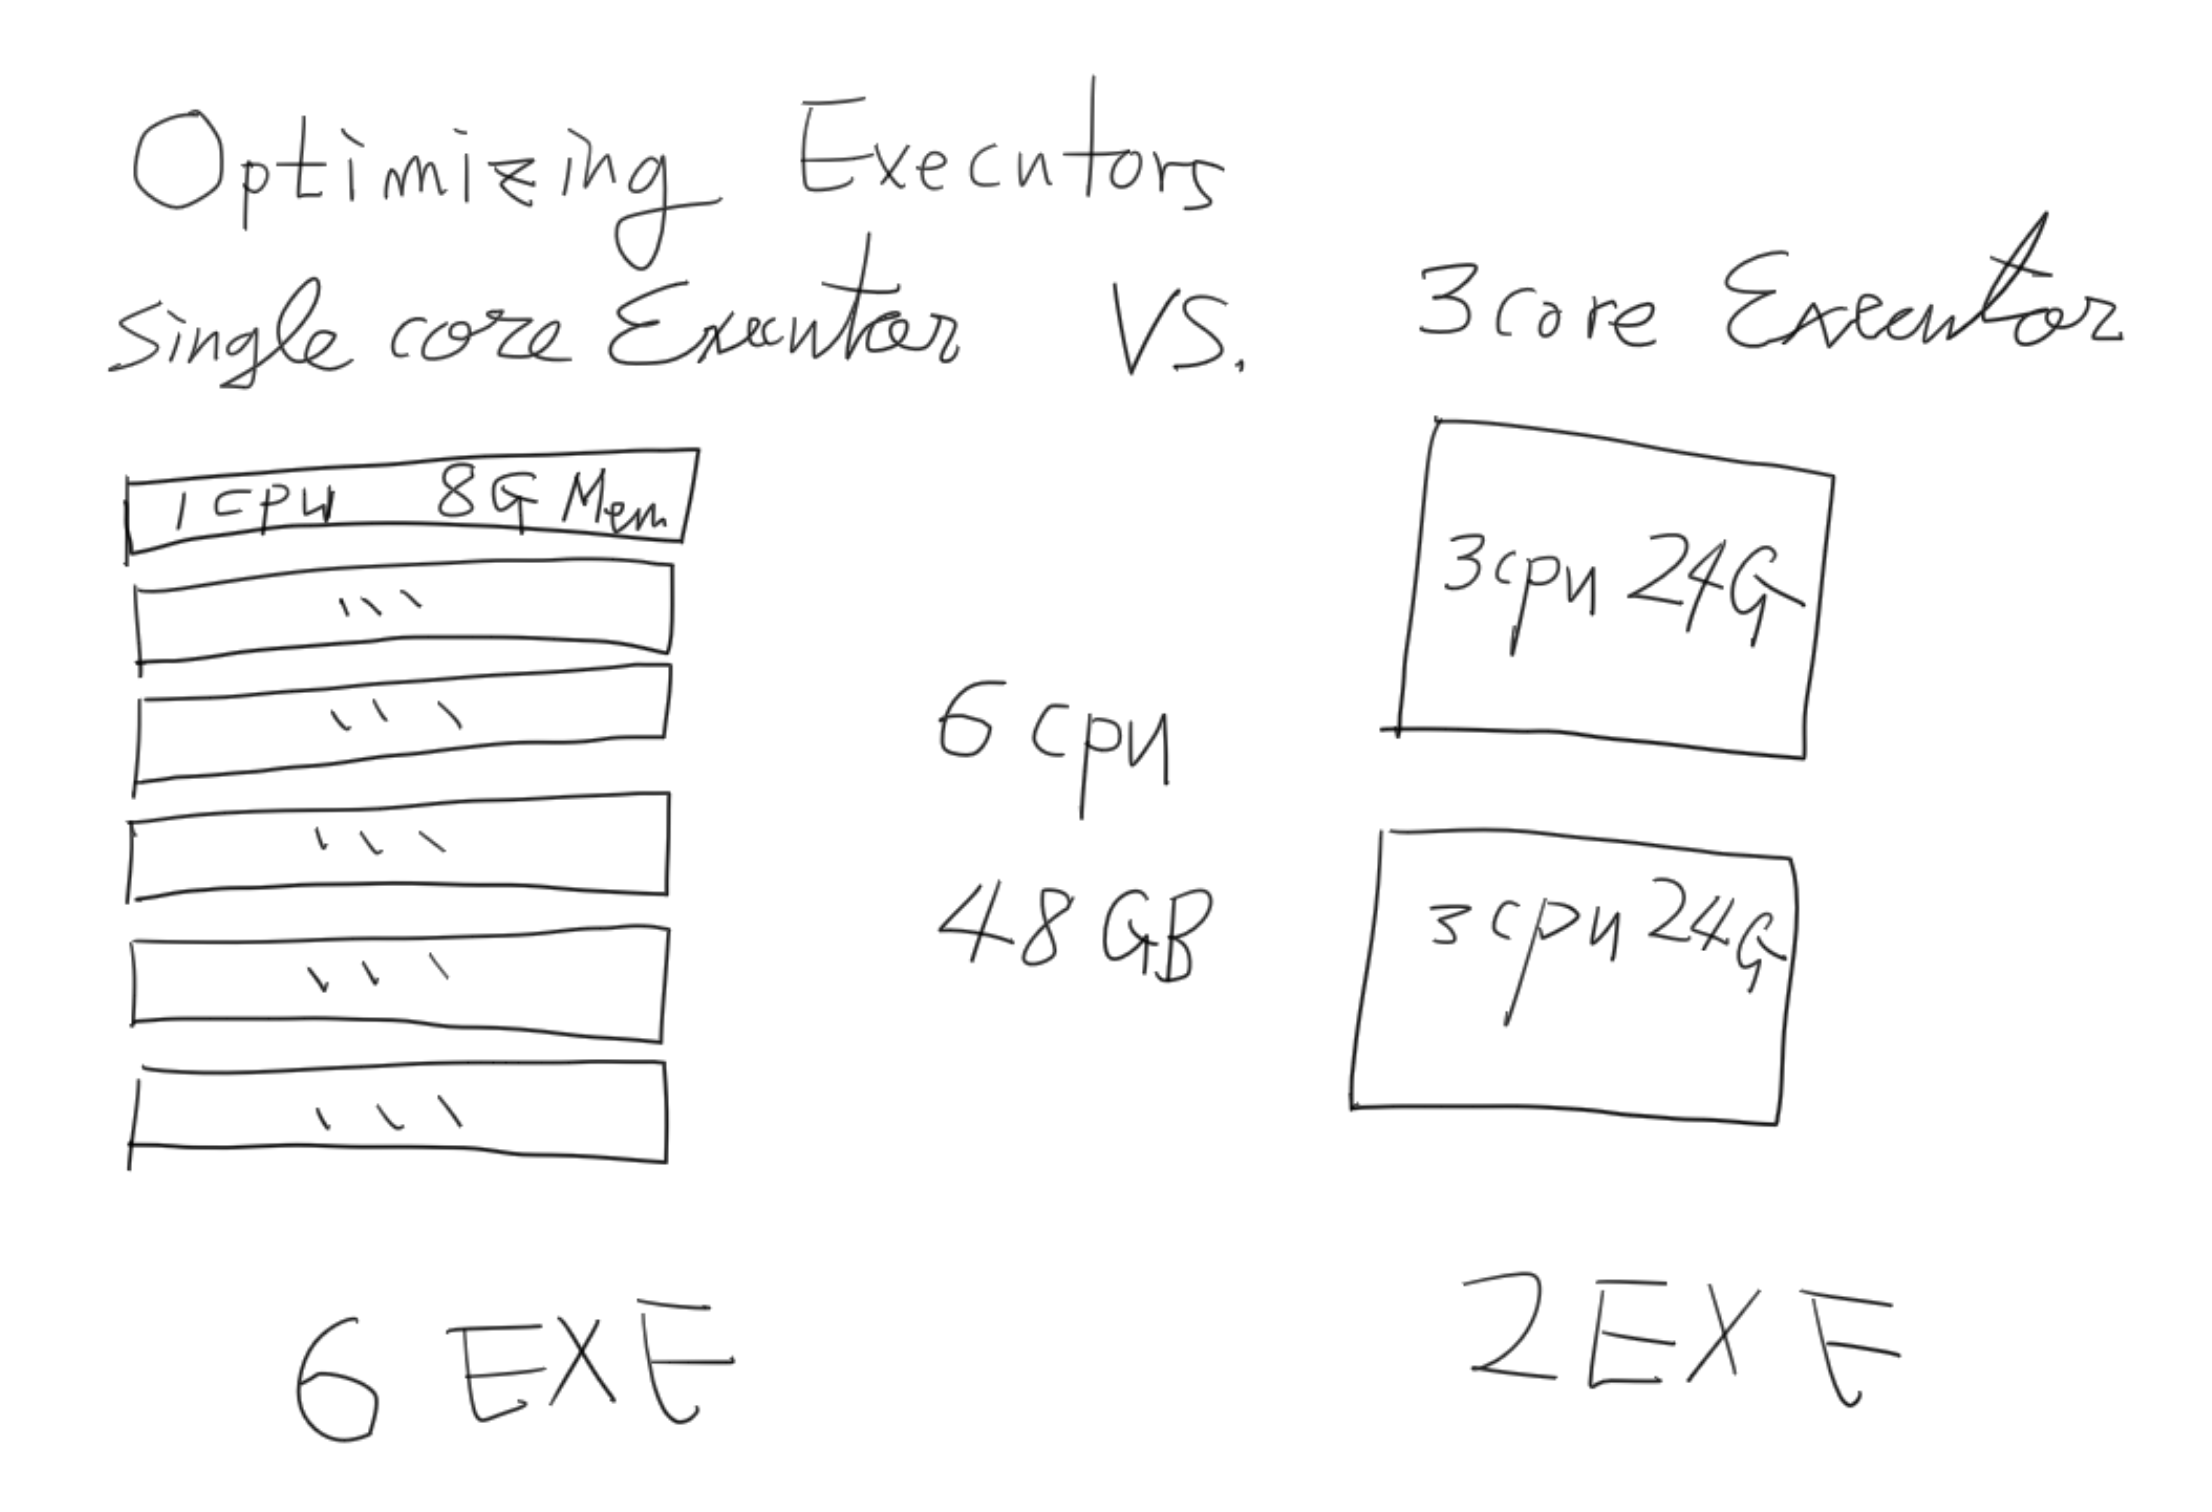 Optimizing Executors
single core Executor VS. 3 core Executor
1 cpu 8G Mem
3 cpu 24G
6 cpu
48 GB
3 cpu 24G
6 EXE
2 EXE